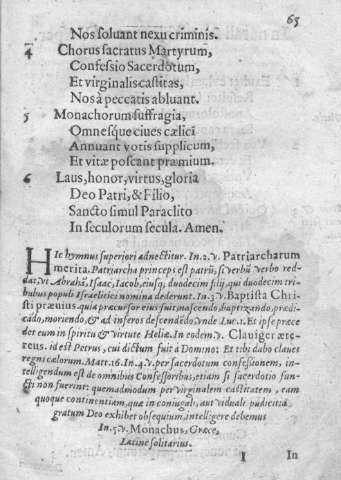 65
Nos soluant nexu criminis.
4 Chorus sacratus Martyrum,
Confessio Sacerdotum,
Et virginalis castitas,
Nos à peccatis abluant.
5 Monachorum suffragia,
Omnesque ciues cælici
Annuant votis supplicum,
Et vitæ poscant præmium.
6 Laus, honor, virtus, gloria
Deo Patri, & Filio,
Sancto simul Paraclito
In seculorum secula. Amen.
HIc hymnus superiori adnectitur. In.2.v. Patriarcharum
merita. Patriarcha princeps est patrū, si verbū verbo red-
dat, vt Abrahā, Isaac, Iacob, eiusq; duodecim filij, qui duodecim tri
bubus populi Israelitici nomina dederunt. In.3.v. Baptista Chri-
sti præuius. quia præcursor eius fuit, nascendo, baptizando, prædi-
cādo, moriendo, & ad inferos descendēdo, vnde Luc.1. Et ipse præce
det eum in spiritu & virtute Heliæ. In eodem.v. Clauiger æte-
reus. id est Petrus, cui dictum fuit a Domino: Et tibi dabo claues
regni cælorum. Matt.16. In.4.v. per sacerdotum confessionem, in-
telligendum est de omnibus Confessoribus, etiam si sacerdotio fun-
cti non fuerint: quemadmodum per virginalem castitatem, eam
quoque continentiam, quæ in coniugali, aut viduali pudicitia
gratum Deo exhibet obsequium, intelligere debemus
In.5.v. Monachus, Græce,
Latine solitarius.
I In